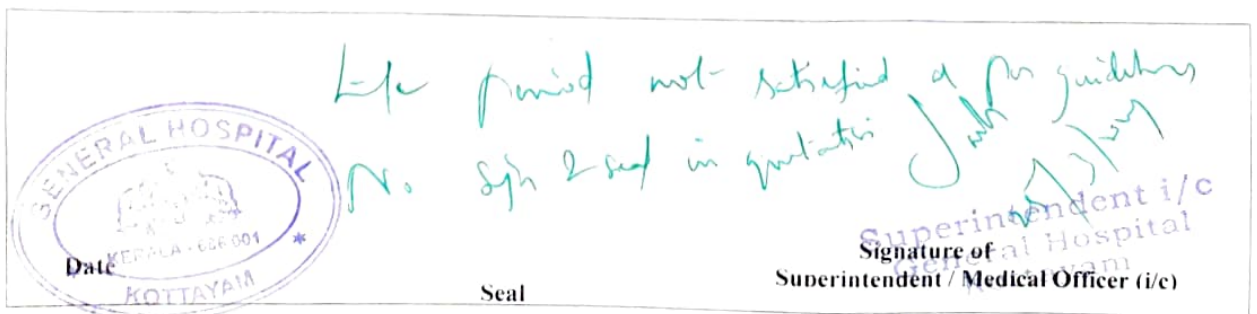 Life period not satisfied as per guidelines
No Sign & seal in quotation
GENERAL HOSPITAL
KERALA - 686 001
KOTTAYAM
Superintendent i/c
General Hospital
Kottayam
Date
Seal
Signature of
Superintendent / Medical Officer (i/c)